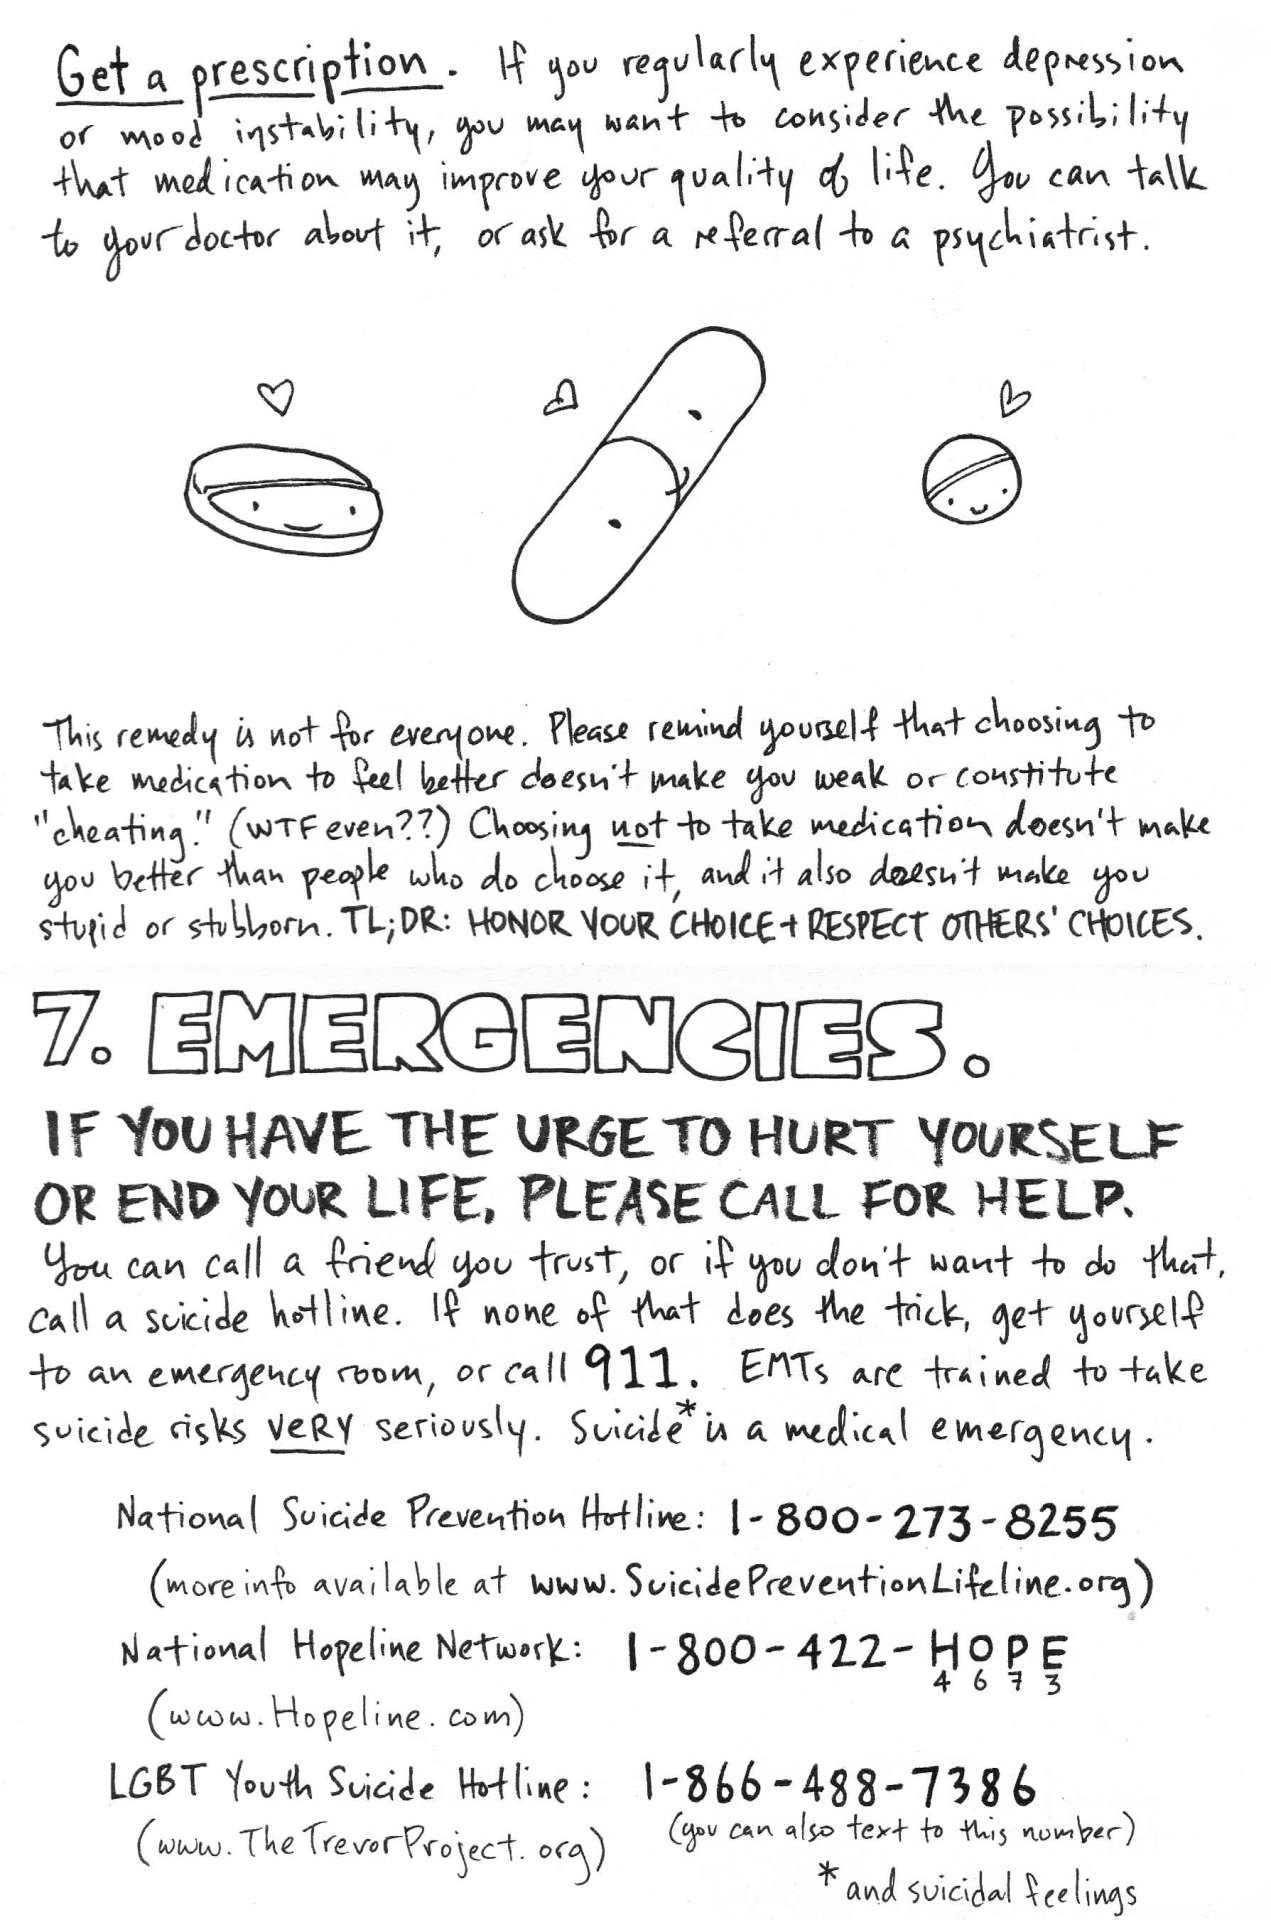 Get a prescription. If you regularly experience depression
or mood instability, you may want to consider the possibility
that medication may improve your quality of life. You can talk
to your doctor about it, or ask for a referral to a psychiatrist.
This remedy is not for everyone. Please remind yourself that choosing to
take medication to feel better doesn't make you weak or constitute
"cheating." (WTF even??) Choosing not to take medication doesn't make
you better than people who do choose it, and it also doesn't make you
stupid or stubborn. TL;DR: HONOR YOUR CHOICE + RESPECT OTHERS' CHOICES.
7. EMERGENCIES.
IF YOU HAVE THE URGE TO HURT YOURSELF
OR END YOUR LIFE, PLEASE CALL FOR HELP.
You can call a friend you trust, or if you don't want to do that,
call a suicide hotline. If none of that does the trick, get yourself
to an emergency room, or call 911. EMTs are trained to take
suicide risks VERY seriously. Suicide* is a medical emergency.
National Suicide Prevention Hotline: 1-800-273-8255
(more info available at www.SuicidePreventionLifeline.org)
National Hopeline Network: 1-800-422-HOPE
4 6 7 3
(www.Hopeline.com)
LGBT Youth Suicide Hotline: 1-866-488-7386
(www.TheTrevorProject.org) (you can also text to this number)
*and suicidal feelings